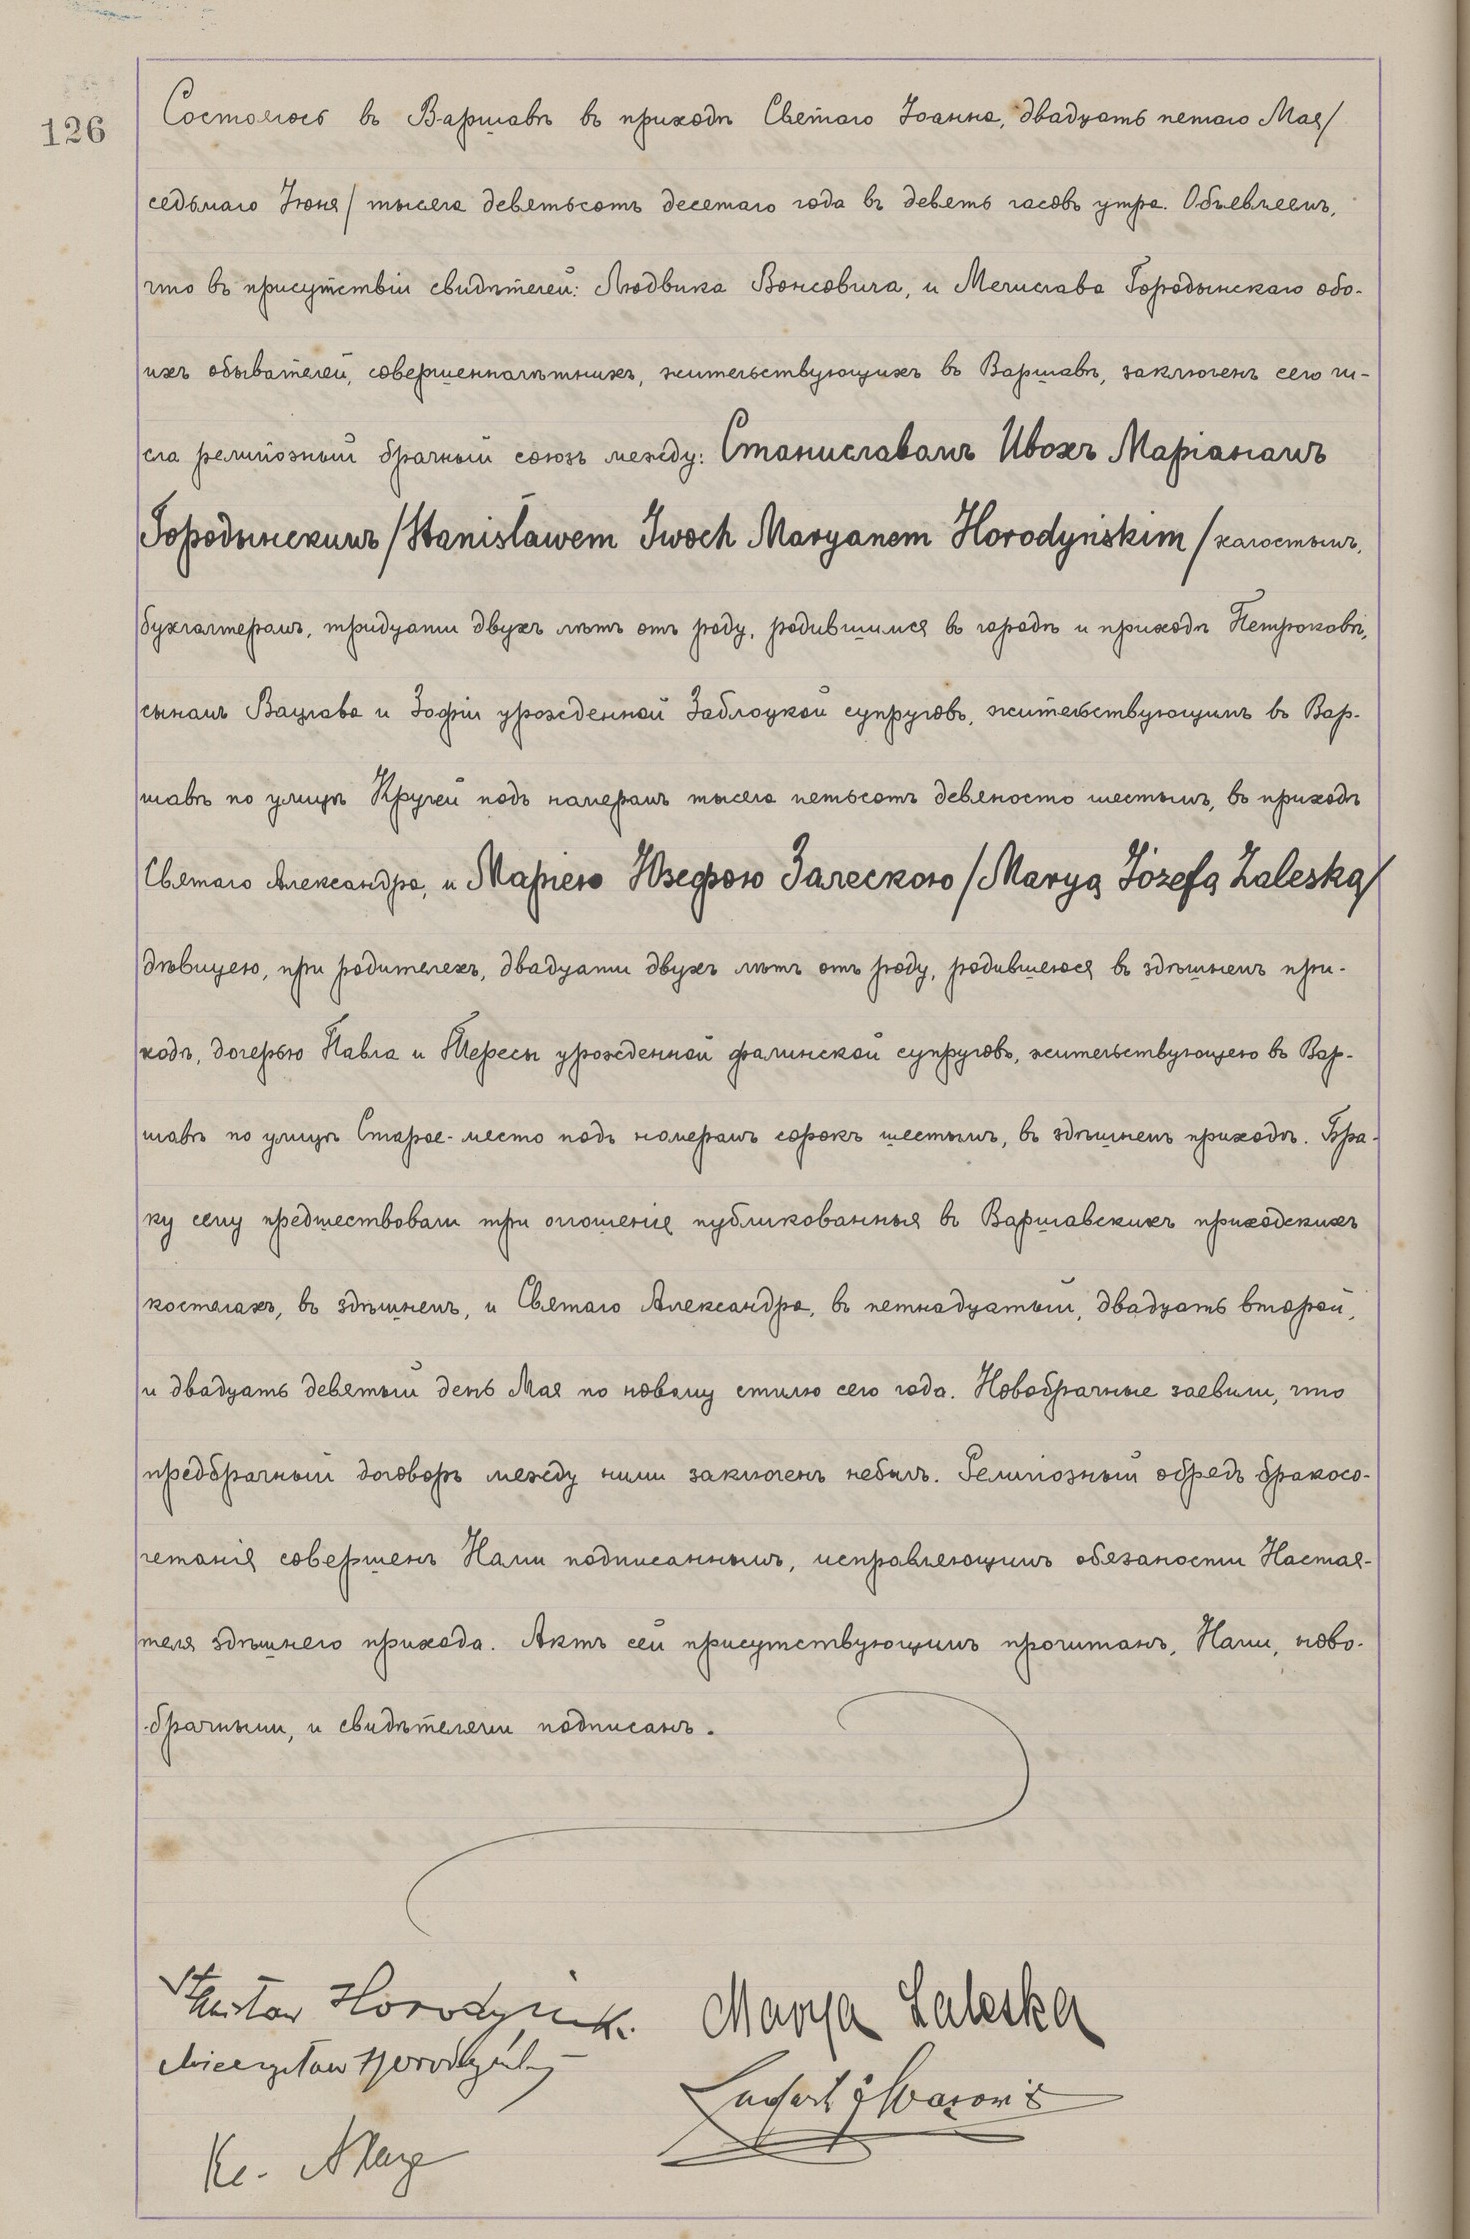 126
Состоялось въ Варшавѣ въ приходѣ Святаго Іоанна, двадцать пятаго Мая/
седьмаго Іюня/ тысяча девятьсотъ десятаго года въ девять часовъ утра. Объявляемъ,
что въ присутствіи свидѣтелей: Людвика Вонсовича, и Мечислава Городынскаго обо-
ихъ обывателей, совершеннолѣтнихъ, жительствующихъ въ Варшавѣ, заключенъ сего чи-
сла религіозный брачный союзъ между: Станиславомъ Ивохъ Маріаномъ
Городынскимъ /Stanisławem Iwoch Maryanem Horodyńskim/ холостымъ,
бухгалтеромъ, тридцати двухъ лѣтъ отъ роду, родившимся въ городѣ и приходѣ Петроковѣ,
сыномъ Вацлава и Зофіи урожденной Заблоцкой супруговъ, жительствующимъ въ Вар-
шавѣ по улицѣ Кручей подъ номеромъ тысяча пятьсотъ девяносто шестымъ, въ приходѣ
Святаго Александра, и Маріею Юзефою Залескою /Maryą Józefą Zaleską/
дѣвицею, при родителяхъ, двадцати двухъ лѣтъ отъ роду, родившеюся въ здѣшнемъ при-
ходѣ, дочерью Павла и Тересы урожденной Фалинской супруговъ, жительствующею въ Вар-
шавѣ по улицѣ Старое-место подъ номеромъ сорокъ шестымъ, въ здѣшнемъ приходѣ. Бра-
ку сему предшествовали три оглошенія публикованныя въ Варшавскихъ приходскихъ
костелахъ, въ здѣшнемъ, и Святаго Александра, въ пятнадцатый, двадцать второй,
и двадцать девятый день Мая по новому стилю сего года. Новобрачные заявили, что
предбрачный договоръ между ними заключенъ небылъ. Религіозный обрядъ бракосо-
четанія совершенъ Нами подписаннымъ, исправляющимъ обязаности Настоя-
теля здѣшнего прихода. Актъ сей присутствующимъ прочитанъ, Нами, ново-
брачными, и свидѣтелями подписанъ.
Stanisław Horodyński Marya Zaleska
Mieczysław Horodyński
Ludwik Wąsowicz
Ks.